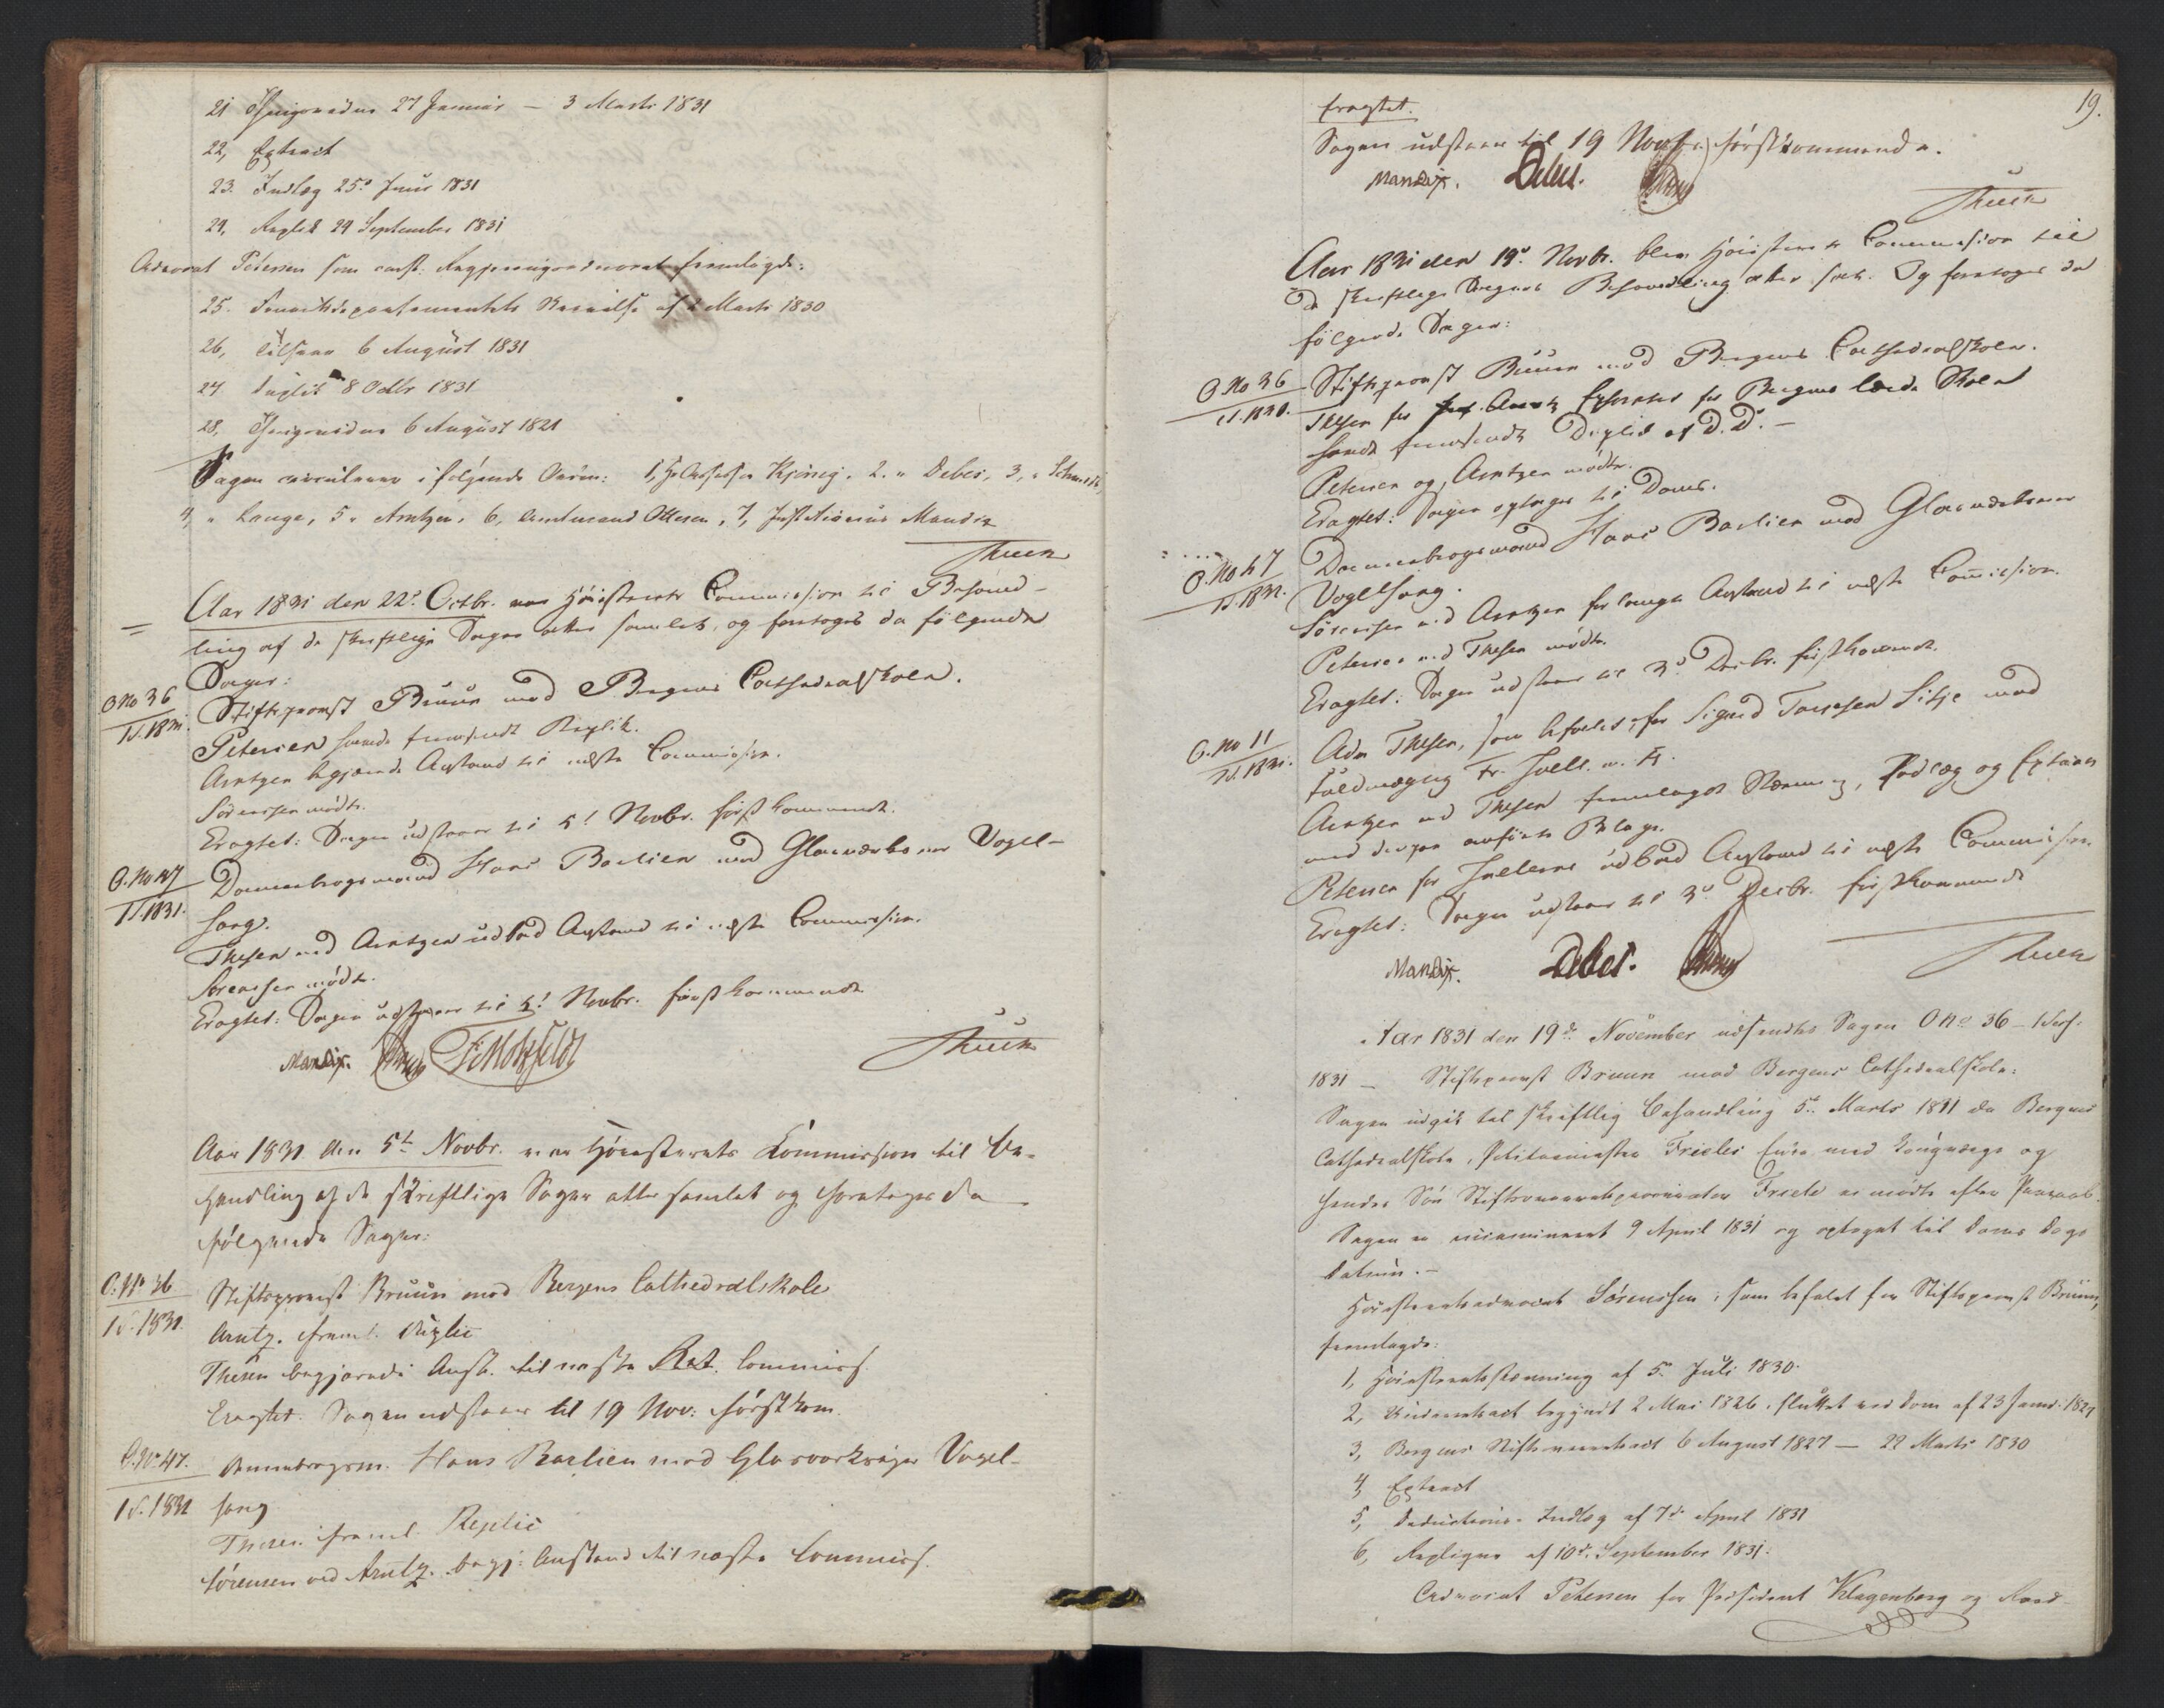 21 Thingsvidne 27 Januar – 3 Marts 1831
22, Extract
23. Indlæg 25de Juni 1831
24, Replik 24 September 1831
Advocat Petersen som const: Regjeringsadvocat fremlagde:
25. Finantsdepartementets Skrivelse af 2 Marts 1830
26, Tilsvar 6 August 1831
27 Duplik 8 Octbr 1831
28, Thingsvidne 6 August 1821
Sagen circulerer i følgende Orden: 1, Hr Assessor Kjønig, 2. " Debes, 3, " Schmidt,
4, " Lange, 5 " Arntzen, 6, Amtmand Ottesen, 7, Justitiarius Mandix
Aar 1831 den 22d Octbr. var Høiesterets Commission til Behand-
ling af de skriftlige Sager atter samlet, og foretoges da følgende
Sager:
O No 36
1S. 1831.
Stiftsprovst Bruun mod Bergens Cathedralskole.
Petersen havde fremsendt Replik.
Arntzen begjærede Anstand til næste Commission.
Sørenssen mødte.
Eragtet: Sagen udstaaer til 5t Novbr. førstkommende.
O. No 47
1S. 1831.
Dannebrogsmand Hans Barlien mod Glasværkseier Vogel-
sang.
Thesen ved Arntzen udbad Anstand til næste Commission.
Sørenssen mødte.
Eragtet: Sagen udstaaer til 5t Novbr. førstkommende
Mandix. F Motzfeldt
Aar 1831 den 5t Novbr. var Høiesterets Kommission til Be-
handling af de skriftlige Sager atter samlet og foretoges da
følgende Sager:
O. No 36
1S. 1831.
Stiftsprovst Bruun mod Bergens Cathedralskole
Arntz. freml. Duplic
Thesen begjærede Anst. til næste Ret. Commiss.
Eragtet: Sagen udstaaer til 19 Nov: førstkom.
O. No 47.
1S. 1831
Dannebrogsm. Hans Barlien mod Glasværkseier Vogel-
sang
Thesen freml. Replic
Sørensen ved Arntz. begj: Anstand til næste Commiss.
19.
Eragtet.
Sagen udstaaer til 19 Novbr. førstkommende.
Mandix. Debes.
Aar 1831 den 19d Novbr. blev Høiesterets Commission til
de skriftlige Sagers Behandling atter sat. Og foretoges da
følgende Sager:
O No 36
1S. 1831.
Stiftsprovst Bruun mod Bergens Cathedralskole.
Thesen for Ephoratet for Bergens lærde Skole
havde fremsendt Duplik af D. D. –
Petersen og Arntzen mødte.
Eragtet: Sagen optages til Doms.
O. No 47
1S. 1831.
Dannebrogsmand Hans Barlien mod Glasværkseier
Vogelsang.
Sørenssen ved Arntzen forlangte Anstand til næste Commission.
Petersen ved Thesen mødte.
Eragtet: Sagen udstaaer til 3d Decbr. førstkommende.
O. No 11
2S. 1831.
Adv Thesen, som befalet, for Sigurd
Fuldmægtig
Arntzen ved Thesen fremlagde Stævning, Indlæg og Extract
med derpaa anførte Bilage.
Petersen for udbad Anstand til næste Commission
Eragtet: Sagen udstaaer til 3d Decbr. førstkommende
Mandix. Debes.
Aar 1831 den 19de November udsendtes Sagen O No 36 – 1 Sess:
1831 – Stiftsprovst Bruun mod Bergens Cathedralskole:
Sagen udgik til skriftlig Behandling 5te Marts 1831 da Bergens
Cathedralskole, Politiemester Frieles Enke med Laugværge og
hendes Søn Friele ei mødte efter Paaraab.
Sagen er 9 April 1831 og optaget til Doms Dags
Datum. –
Høiesteretsadvocat Sørenssen, som befalet for Stiftsprovst Bruun,
fremlagde:
1, Høiesteretsstævning af 5. Juli 1830.
2, Underretsact begyndt 2 Mai 1826, sluttet ved Dom af 23 Januar 1827
3, Bergens Stiftsoverretsact 6 August 1827 – 22 Marts 1830
4, Extract
5, Deductions-Indlæg af 7de April 1831
6, Repliqve af 10de September 1831.
Advocat Petersen for Præsident Klagenberg og